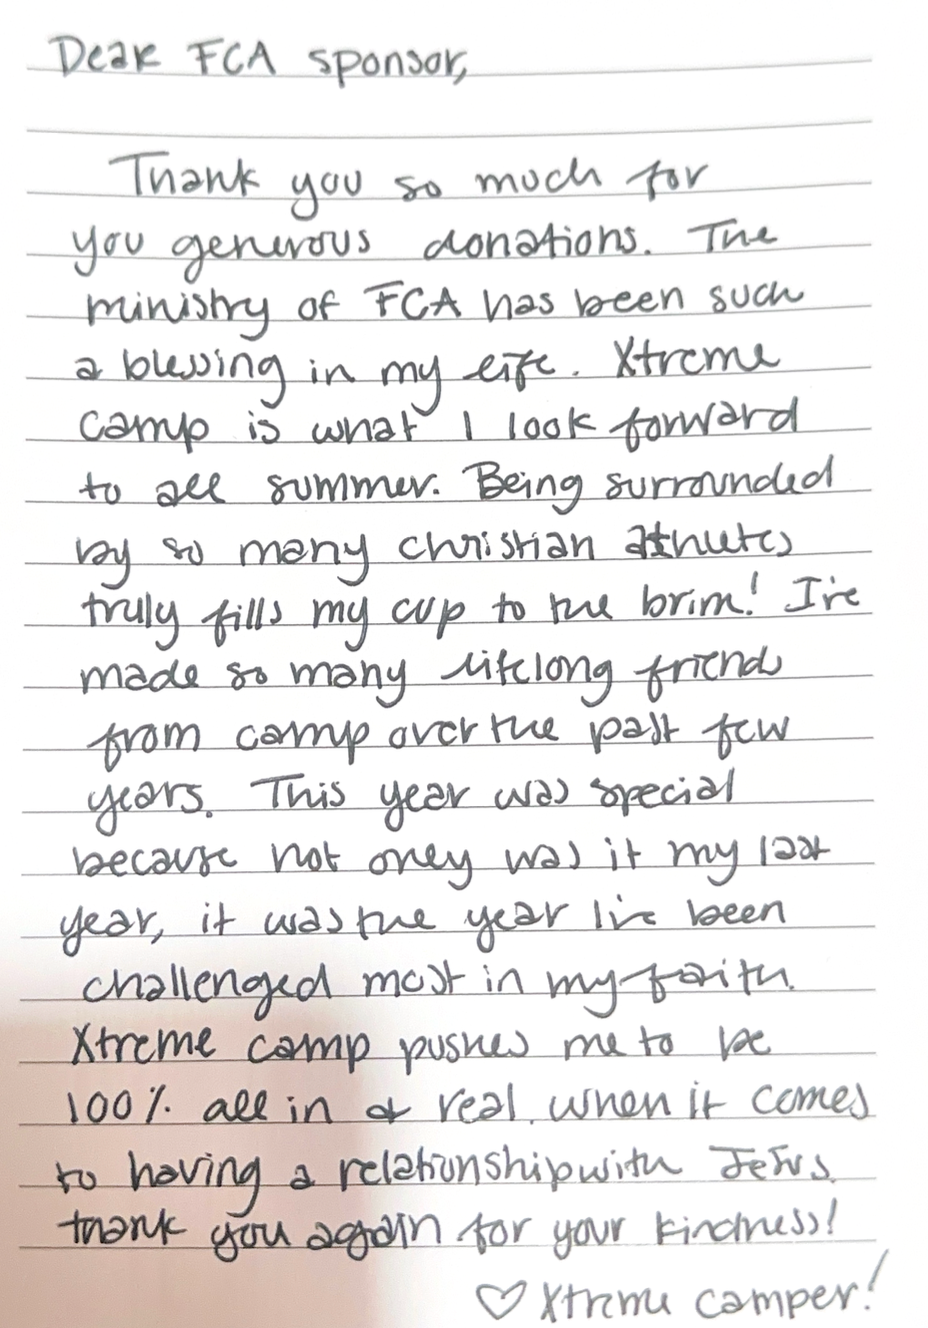 Dear FCA sponsor,
Thank you so much for
you generous donations. The
ministry of FCA has been such
a blessing in my life. Xtreme
camp is what I look forward
to all summer. Being surrounded
by so many christian athletes
truly fills my cup to the brim! I've
made so many lifelong friends
from camp over the past few
years. This year was special
because not only was it my last
year, it was the year I've been
challenged most in my faith.
Xtreme camp pushes me to be
100% all in & real when it comes
to having a relationship with Jesus.
thank you again for your kindness!
♡ Xtreme camper!